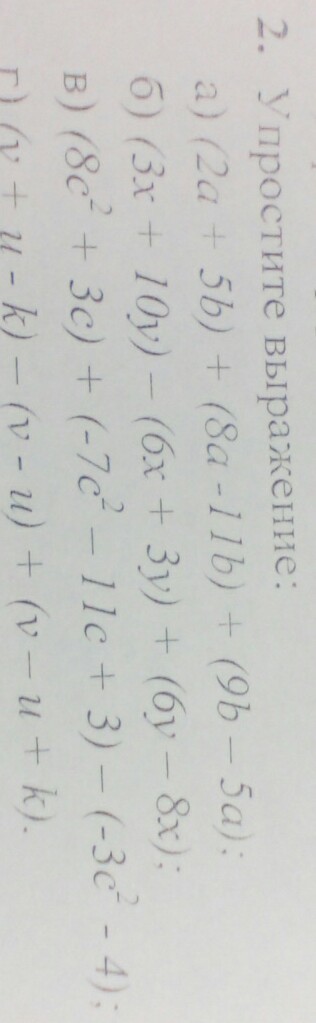 2. Упростите выражение:
а) (2a + 5b) + (8a - 11b) + (9b – 5a);
б) (3x + 10y) – (6x + 3y) + (6y – 8x);
в) (8c² + 3c) + (-7c² – 11c + 3) – (-3c² - 4);
г) (v + u - k) – (v - u) + (v – u + k).